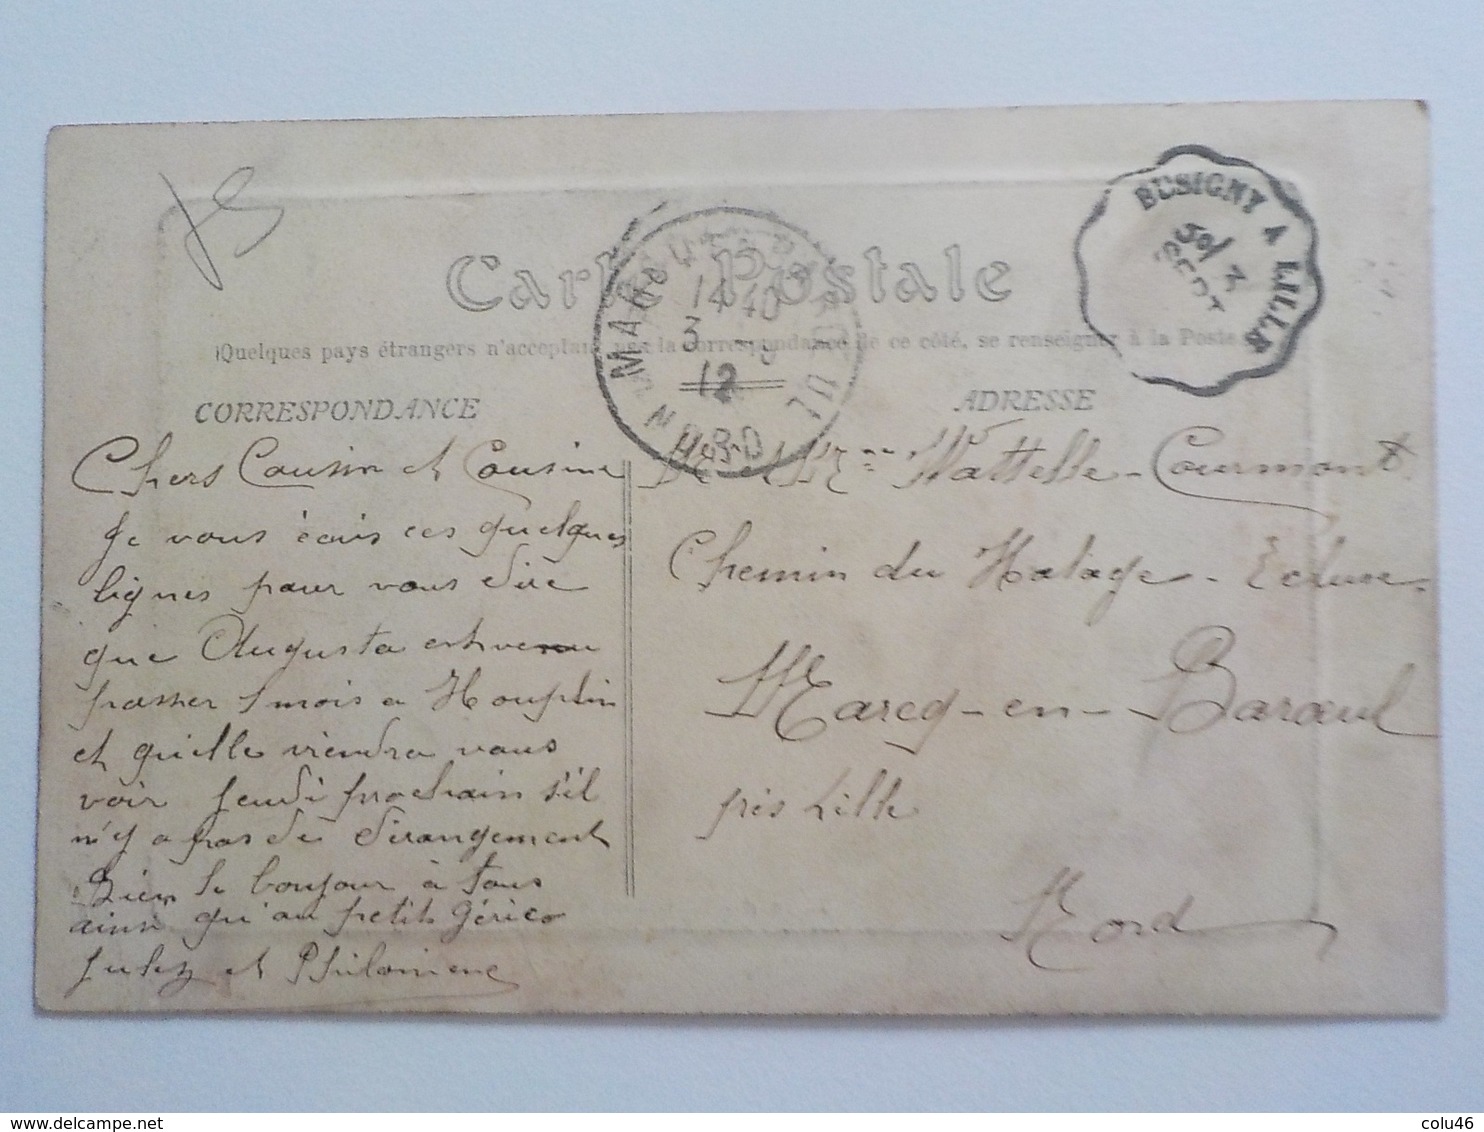 Carte Postale
(Quelques pays étrangers n'acceptant pas la correspondance de ce côté, se renseigner à la Poste
CORRESPONDANCE
ADRESSE
MARCQ
14 40
3 - 9
12
NORD
BUSIGNY A LILLE
Chers Cousin et Cousine
Je vous écris ces quelques
lignes pour vous dire
que Augusta est venu
passer 1 mois a Houplin
et quelle viendra vous
voir jeudi prochain s'il
n'y a pas de dérangement
Bien le bonjour à tous
ainsi qu'au petit Gérico
Julez et Philomene
Mr et Mme Wattelle-Courmont
Chemin du Halage - Ecluse
Marcq-en-Baroeul
près Lille
Nord
www.delcampe.net
colu46